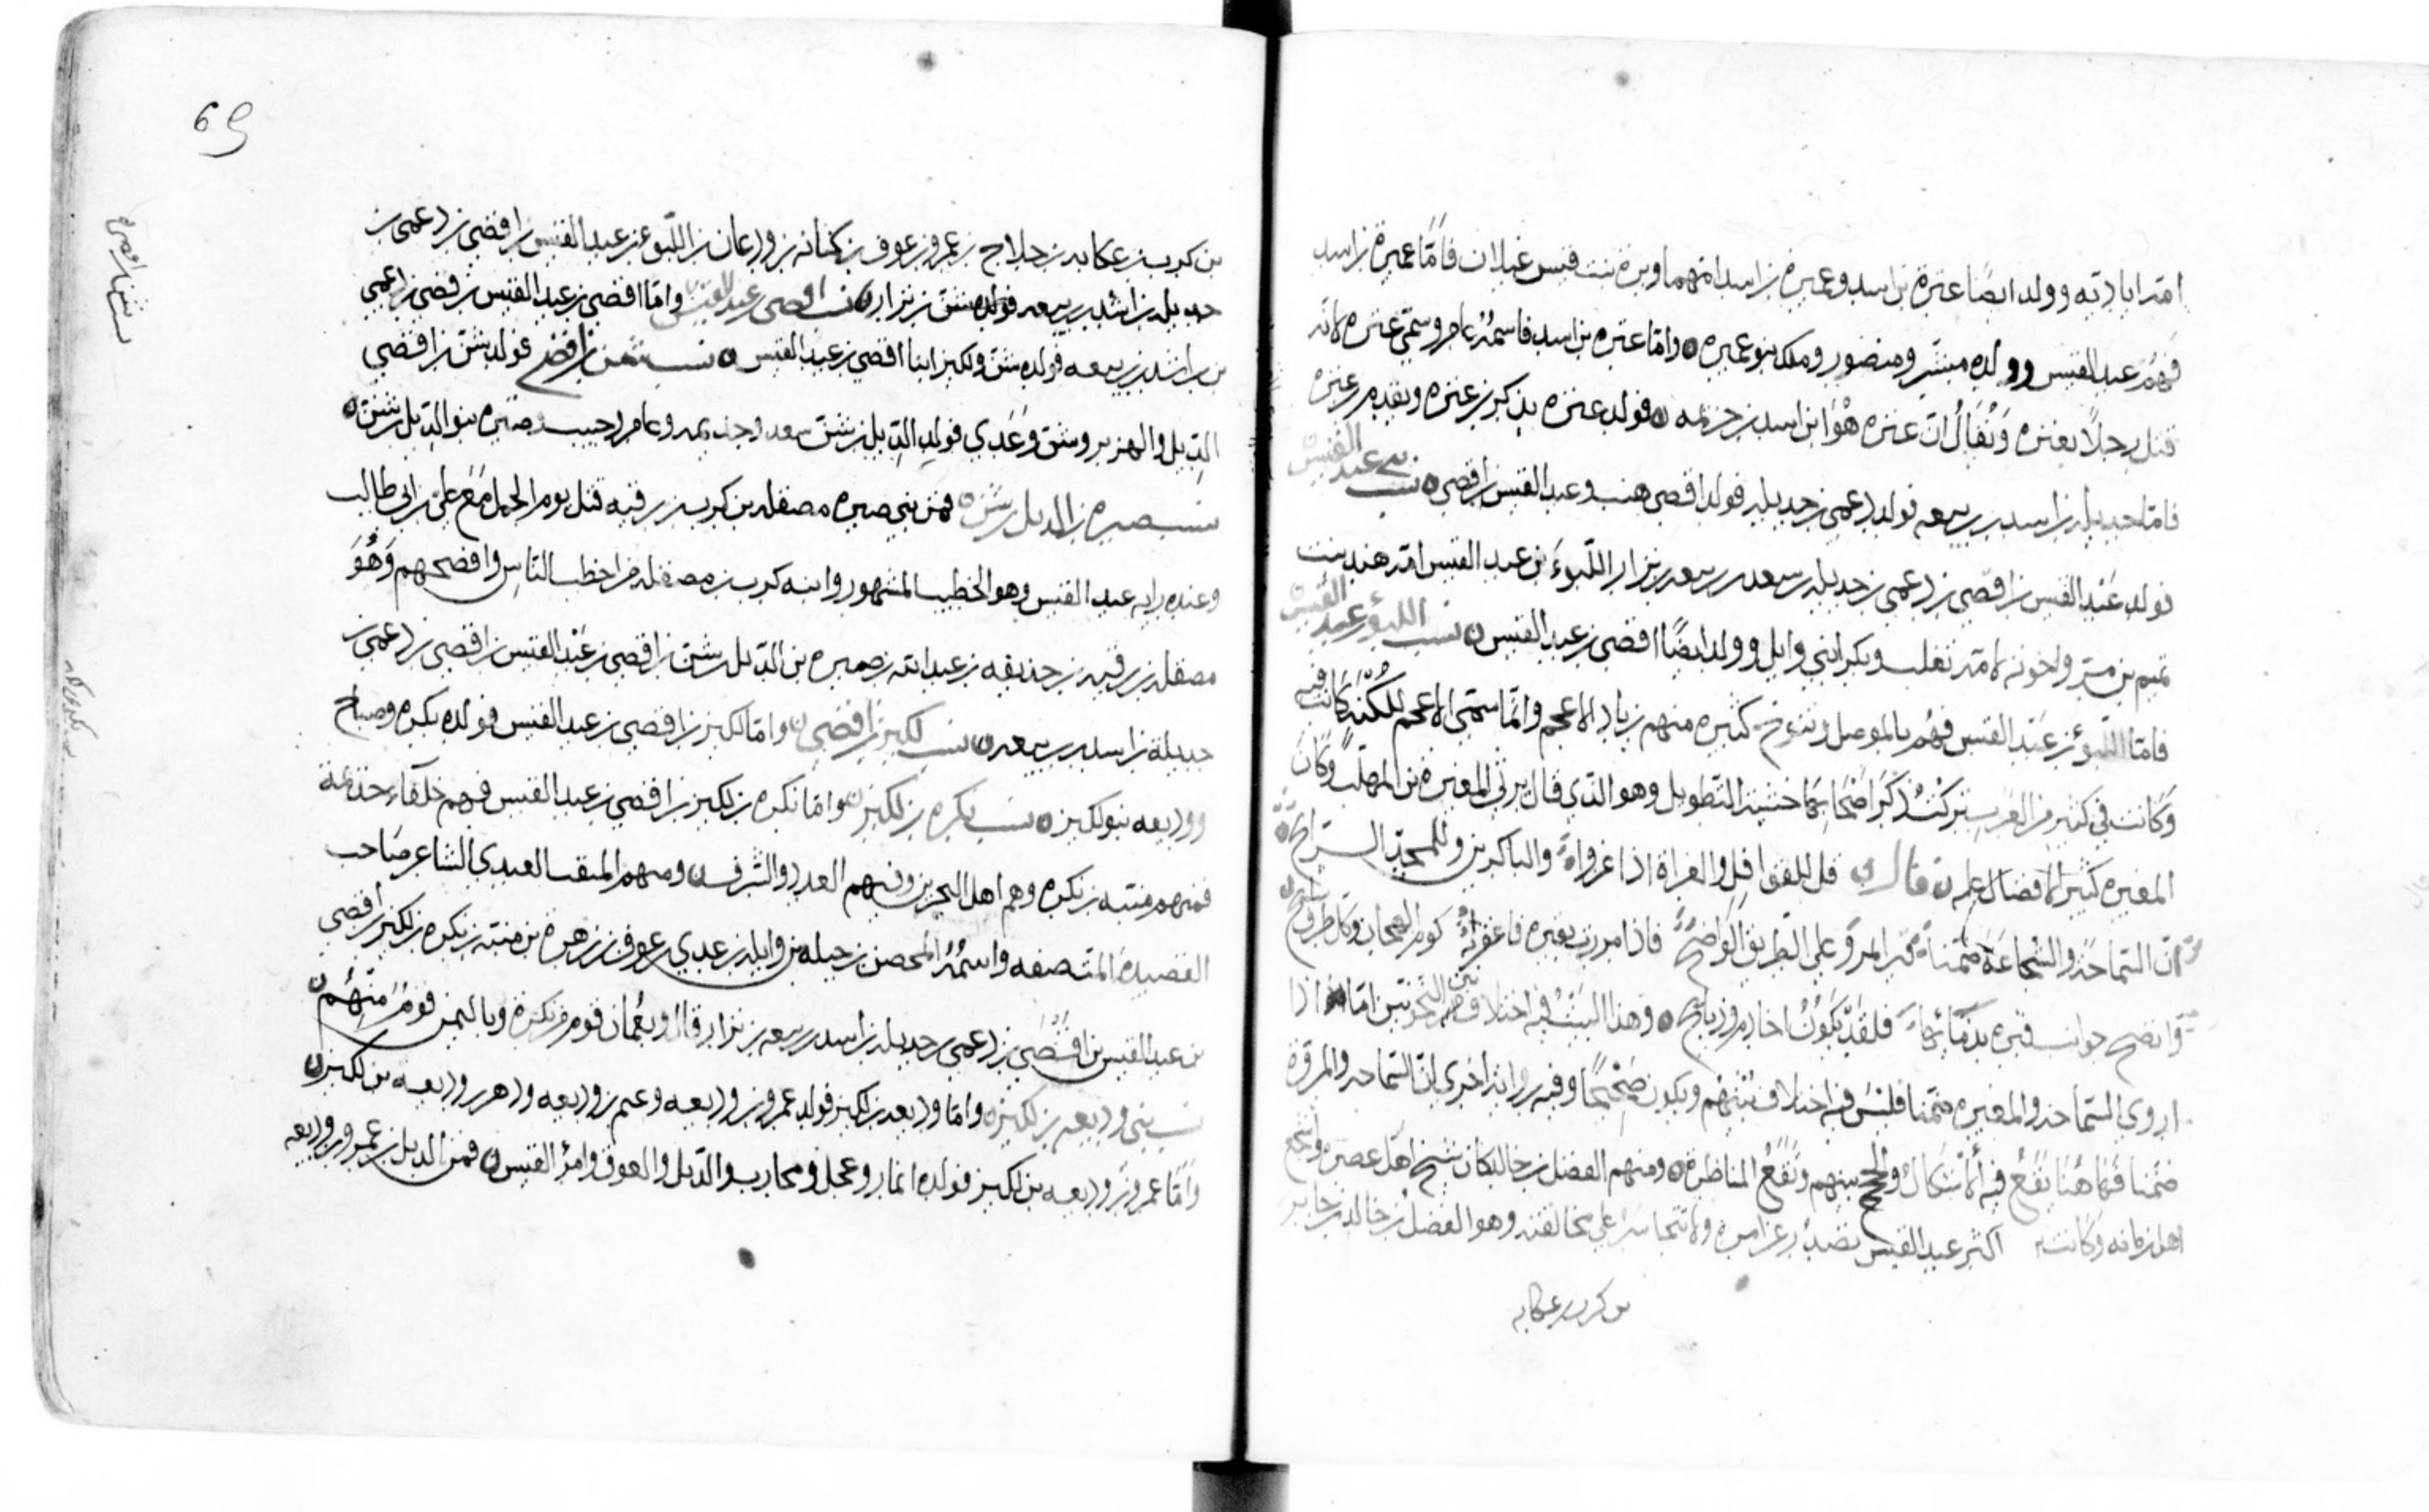 امه اياديّه وولد ايضًا عنزة بن اسد وعميرة بن اسد امهما وبرة بنت قيس غيلان فأمّا عميرة بن اسد
فهم عبد القيس وولده مبشر ومنصور وملك بنو عميره واما عنزه بن اسد فاسمهُ عامر وسمّي عنزه لانه
قتل رجلًا بعنزه وَيُقالُ انّ عنزه هُوَ ابن اسد بن خزيمه فولد عنزه يذكر بن عنزه ويقدم بن عنزه
فامّا جديله بن اسد بن ربيعه فولد دعمي بن جديله فولد افصى هنب وعبد القيس بن افصى نسب بني عبد القيس
فولد عَبْد القيس بن افصى بن دعمي بن جديله بن سعد بن ربيعه بن نزار اللّبوءَ بن عبد القيس امّه هند بنت
تميم بن مرّ واخوته لامّه تغلب وبكر ابني وايل وولد ايضًا افصى بن عبد القيس نسب اللبوء بن عبد القيس
فامّا اللّبوءُ بن عَبْد القيس فهُم بالموصل وبتوج كثيره منهم زياد الاعجم وانّما سمّي الاعجم للكْنةٍ كانت فيه
وَكانت في كثير من العَرب تركتُ ذكرَ اصْحابها خشية التطويل وهو الذي قال يرثي المغيرة بن المهلّب وكانَ
المغيره كثير الافضال عليه قال قل للقوافل والغزاة اذا غزوا والباكرين وللمجدّ الرايح
انّ السّماحة والشجاعَةَ ضمّنا قبرا بمروٍ على الطريق الواضح فاذا مررت بقبره فاعقر به كوم الهجان وكل طرف سابح
وانضح جوانب قبره بدمَائها فلقد يكونُ اخا دمٍ وذبايح وهذا البيتُ فيه اختلاف بين النحويّين امّا اذا
اروي السّماحة والمغيره ضمّنا فليس فيه اختلاف بيْنهم ويكون صَحْيحًا وفيه روايه اخرى انّ السّماحه والمروّة
ضمّنا فهَاهُنا يقعُ فيه الاشكالُ والحجج بينهم وتقعُ المناظرة ومنهم الفضل بن خالد كان شيخ اهل عصره واشجع
اهل زمانه وكانت اكثر عبد القيس تصدُر عن امره ولا تتجاسرُ على مخالفته وهو الفضل بن خالد بن جابر
بن كرب بن عكابه
69
بن كرب بن عكابه بن جلاح بن عمرو بن عوف بن كنانه بن ودعان بن اللّبوء بن عبد القيس بن افصى بن دعمي بن
جديله بن اسد بن ربيعه بن نزار نسب افصى بن عبد القيس وامّا افصى بن عبد القيس بن افصى بن دعمي
بن اسد بن ربيعه فولد شنّ ولكيز ابنا افصى بن عبد القيس نسب شنّ بن افصى فولد شنّ بن افصى
الدّيل والهزبر وشنّ وعَدي فولد الدّيل بن شنّ سعد وجذيمه وعامر وحبيب وصبره بنو الدّيل بن شنّ
نسب صبره بن الديل بن شنّ فمن بني صبره مصقله بن كرب بن رقبه قتل يوم الجمل مَع علي بن ابي طالب
وعنده راية عبد القيس وهو الخطيب المشهور وابنه كرب بن مصقله من اخطب النّاس وافصحهم وَهُوَ
مصقله بن رقبه بن حذيفه بن عبد الله بن صبره بن الدّيل بن شنّ بن افصى بن عَبْد القيس بن افصى بن دعمي بن
جديلة بن اسد بن ربيعه نسب لكيز بن افصى وامّا لكيز بن افصى بن عبد القيس فولده نكره وصباح
ووديعه بنو لكيز نسب نكره بن لكيز وامّا نكره بن لكيز بن افصى بن عبد القيس فهم حلفاء جذيمة
فمنهم منبّه بن نكره وهم اهل البحرين وفيهم العدد والشرف ومنهم المثقب العبدي الشاعر صَاحب
القصيدة المنصفه واسمُهُ المحصن بن وايله بن عدي بن عوف بن زهره بن منبّه بن نكره بن لكيز بن افصى
بن عبد القيس بن افصى بن دعمي بن جديله بن اسد بن ربيعه بن نزار قال وبعُمان قوم من نكرة وباليمن قومٌ منهُم
نسب بني وديعه بن لكيز وامّا وديعه بن لكيز فولد عمرو بن وديعه وغنم بن وديعه ودهن بن وديعه بن لكيز
وامّا عمرو بن وديعه بن لكيز فولده انمار وعجل ومحارب والدّيل والعوق وامرُ القيس فمن الديل بن عمرو بن وديعه